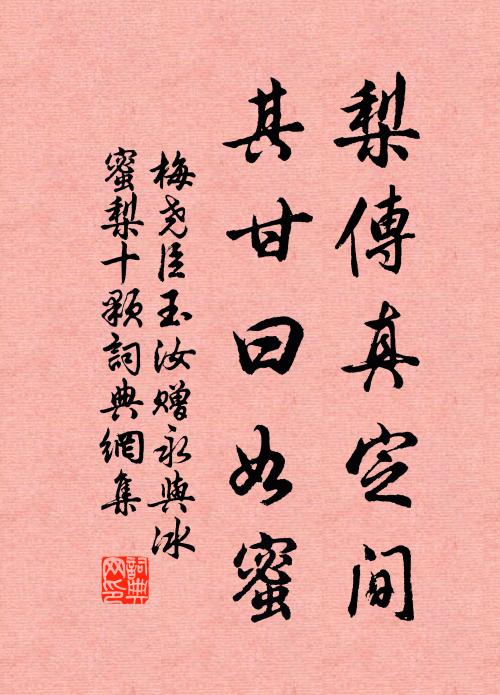 梨傳真定间
其甘曰如蜜
梅尧臣玉汝赠永興冰
蜜梨十颗詞典網集
詞典
网印